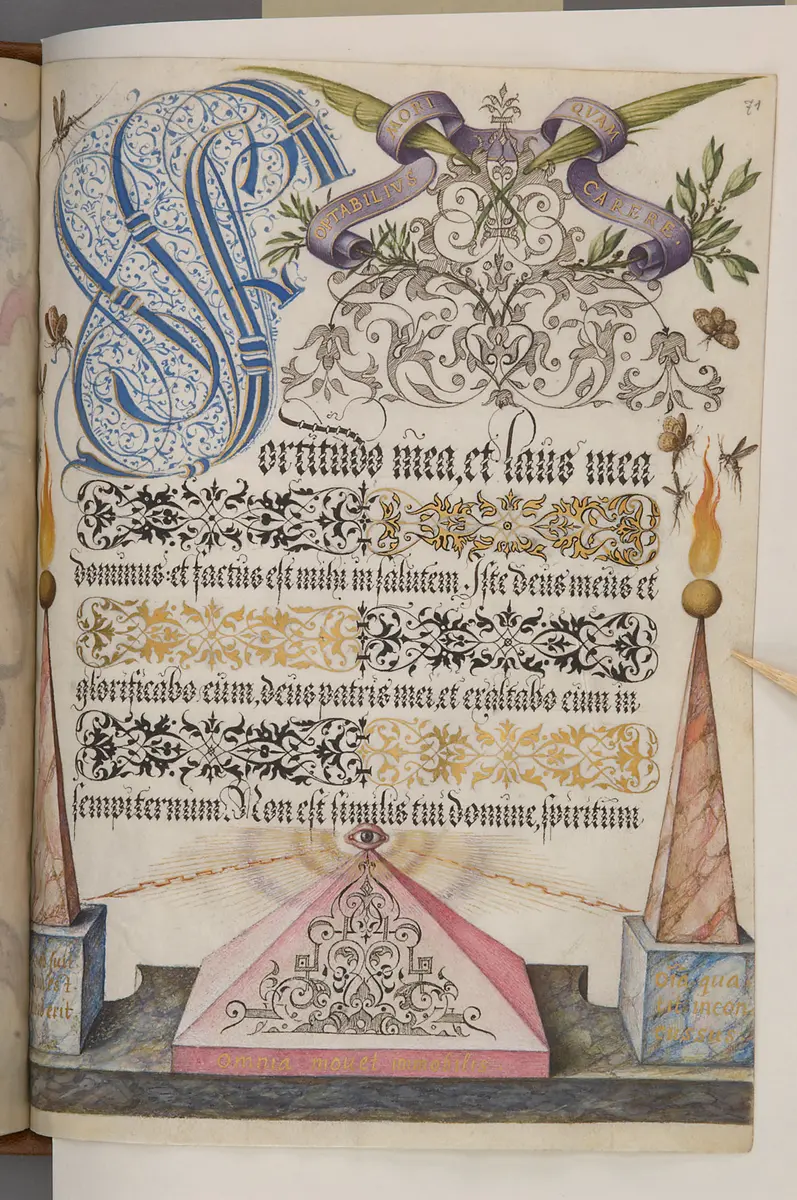 71
OPTABILIUS MORI QVAM CARERE.
Fortitudo mea, et laus mea
dominus: et factus est mihi in salutem. Iste deus meus et
glorificabo eum, deus patris mei, et exaltabo eum in
sempiternum. Non est similis tui domine, spiritum
Omnia mouet immobilis
qua
incon
cessus
erit.